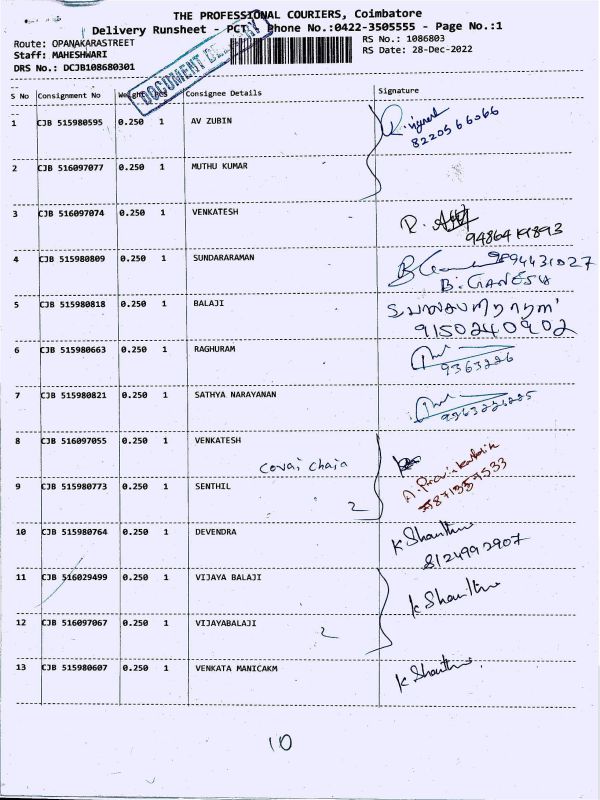 THE PROFESSIONAL COURIERS, Coimbatore
Delivery Runsheet - PCT Phone No.:0422-3505555 - Page No.:1
Route: OPANAKARASTREET
RS No.: 1086803
Staff: MAHESHWARI
RS Date: 28-Dec-2022
DRS No.: DCJB108680301
DOCUMENT DELIVERY
S No Consignment No Weight Pcs Consignee Details Signature
1 CJB 515980595 0.250 1 AV ZUBIN
8220566066
2 CJB 516097077 0.250 1 MUTHU KUMAR
3 CJB 516097074 0.250 1 VENKATESH
4 CJB 515980809 0.250 1 SUNDARARAMAN
B. GANESH
5 CJB 515980818 0.250 1 BALAJI
9150240902
6 CJB 515980663 0.250 1 RAGHURAM
9363226
7 CJB 515980821 0.250 1 SATHYA NARAYANAN
8 CJB 516097055 0.250 1 VENKATESH
covai chain
9 CJB 515980773 0.250 1 SENTHIL
2
10 CJB 515980764 0.250 1 DEVENDRA K Shanthi
8124992907
11 CJB 516029499 0.250 1 VIJAYA BALAJI K Shanthi
12 CJB 516097067 0.250 1 VIJAYABALAJI
2
13 CJB 515980607 0.250 1 VENKATA MANICAKM K Shanthi
10